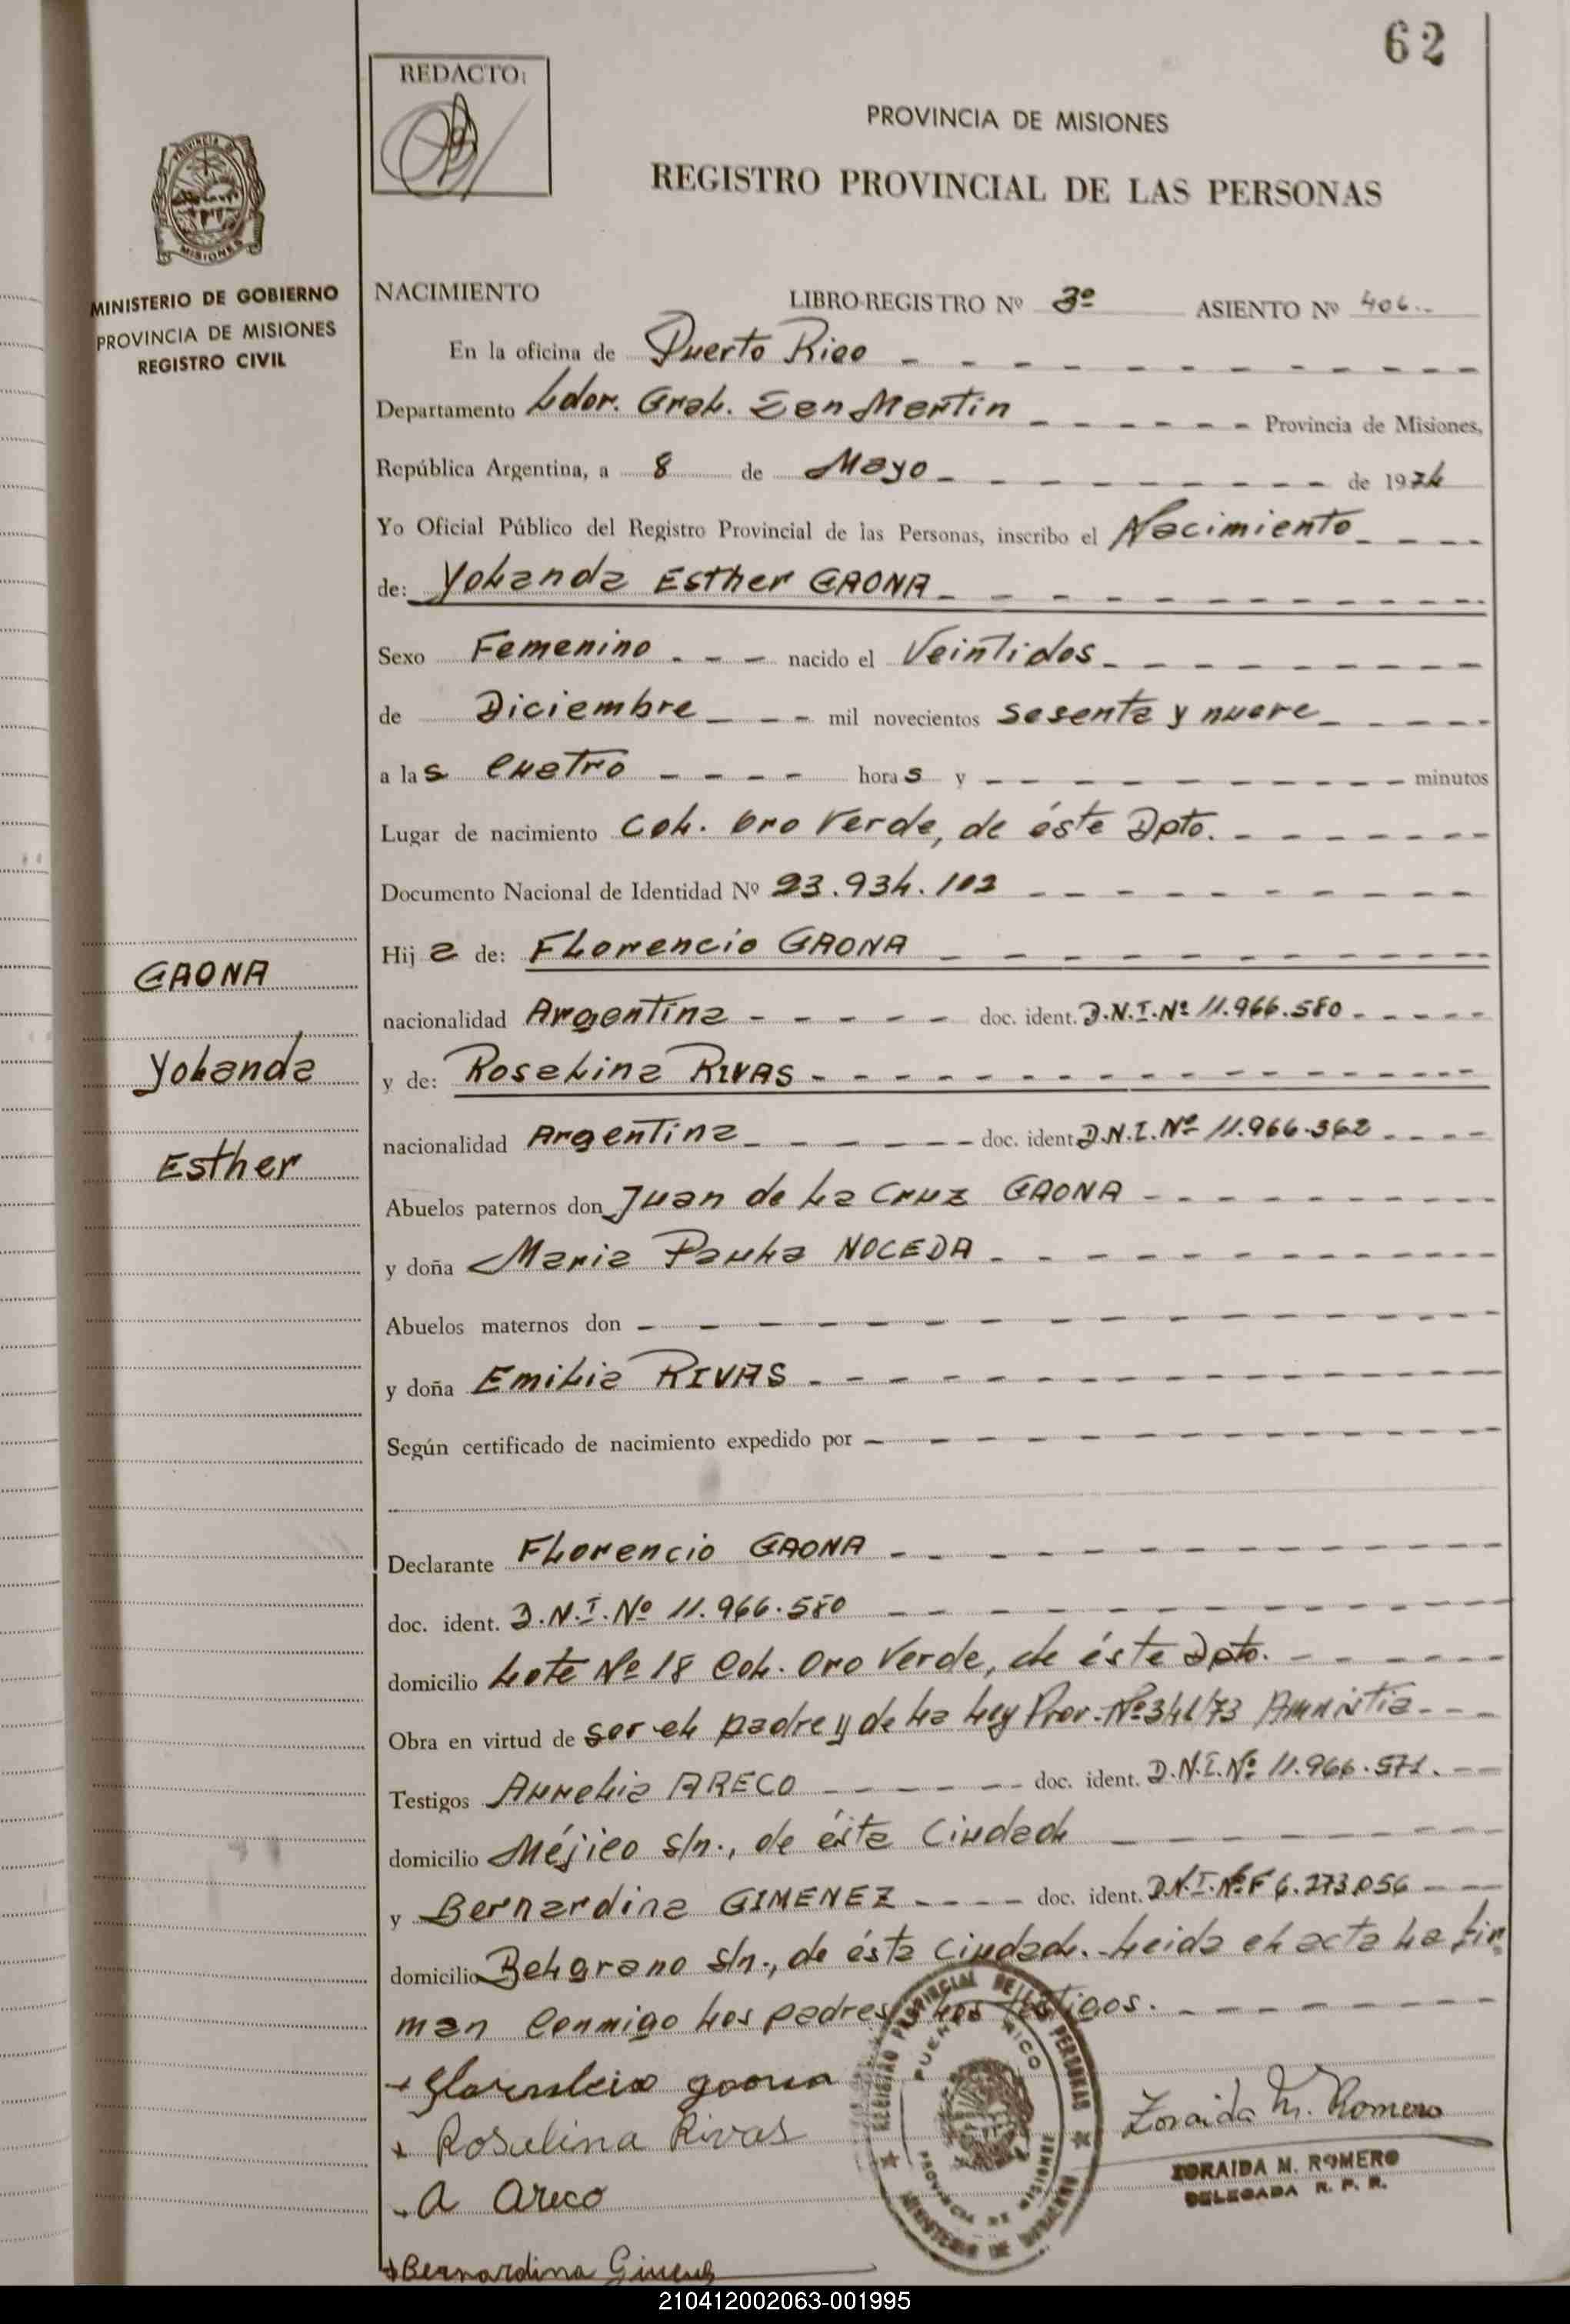 62
REDACTO:
PROVINCIA DE MISIONES
REGISTRO PROVINCIAL DE LAS PERSONAS
MISIONES
MINISTERIO DE GOBIERNO
PROVINCIA DE MISIONES
REGISTRO CIVIL
NACIMIENTO LIBRO-REGISTRO Nº 3º ASIENTO Nº 406.-
En la oficina de Puerto Rico
Departamento Ldor. Gral. San Martin Provincia de Misiones,
República Argentina, a 8 de Mayo de 1974
Yo Oficial Público del Registro Provincial de las Personas, inscribo el Nacimiento
de: Yolanda Esther GAONA
Sexo Femenino nacido el Veintidos
de Diciembre mil novecientos sesenta y nueve
a las cuatro horas y minutos
Lugar de nacimiento Col. Oro Verde, de éste Dpto.
Documento Nacional de Identidad Nº 23.934.102
Hija de: Florencio GAONA
GAONA
nacionalidad Argentina doc. ident. D.N.I.Nº 11.966.580
Yolanda
y de: Rosalina RIVAS
nacionalidad Argentina doc. ident. D.N.I.Nº 11.966.362
Esther
Abuelos paternos don Juan de la Cruz GAONA
y doña Maria Paula NOCEDA
Abuelos maternos don
y doña Emilia RIVAS
Según certificado de nacimiento expedido por
Declarante Florencio GAONA
doc. ident. D.N.I.Nº 11.966.580
domicilio Lote Nº 18 Col. Oro Verde, de éste Dpto.
Obra en virtud de ser el padre y de la Ley Prov. Nº 341/73 Amnistia
Testigos Aurelia ARECO doc. ident. D.N.I.Nº 11.966.571.
domicilio Méjico s/n., de ésta Ciudad
y Bernardina GIMENEZ doc. ident. D.N.I.Nº F 6.273.056
domicilio Belgrano s/n., de ésta Ciudad. Leida el acta la fir
man conmigo los padres los testigos.
REGISTRO PROVINCIAL DE LAS PERSONAS
PUERTO RICO
PROVINCIA DE MISIONES
MINISTERIO DE GOBIERNO
gaona
Rosalina Rivas
Zoraida M. Romero
ZORAIDA M. ROMERO
DELEGADA R. P. P.
A Areco
Bernardina Gimenez
210412002063-001995